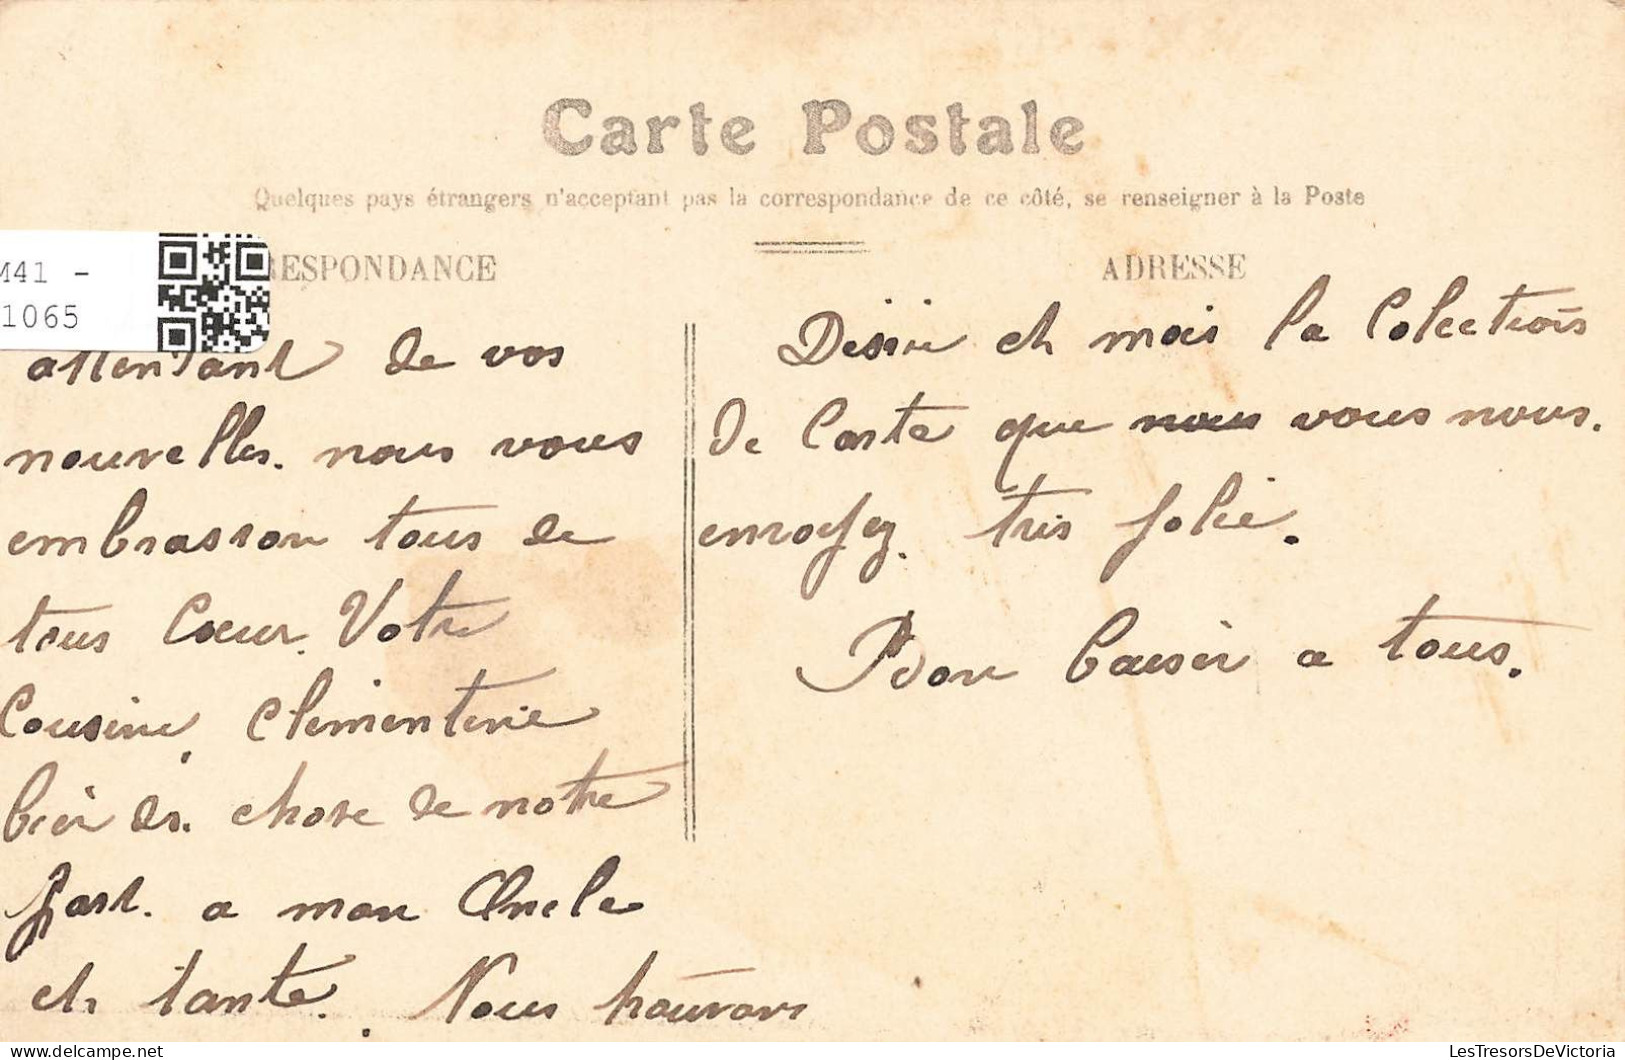 Carte Postale
Quelques pays étrangers n'acceptant pas la correspondance de ce côté, se renseigner à la Poste
M41 -
1065
RESPONDANCE
attendant de vos
nouvelles. nous vous
embrasson tous de
tous Cœur. Votre
Cousine, Clementenie
bien des. chose de notre
part. a mon Oncle
et tante. Nous trouvons
ADRESSE
Desire et moi la Colection
de Carte que nous vous nous.
envoyez. tres jolie.
Bon baiser a tous.
LesTresorsDeVictoria